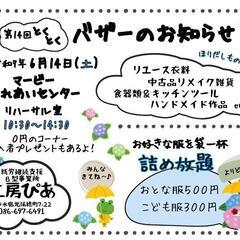 第14回 とくとく
バザーのお知らせ
6月14日(土)
マービー
ふれあいセンター
リハーサル室
10:30～14:30
0円のコーナー
プレゼントもあるよ!
ほりだしもの
リユース衣料
中古品リメイク雑貨
食器類&キッチンツール
ハンドメイド作品 etc
みんな
きてね～♪
お好きな服を袋一杯
詰め放題
おとな服500円
こども服300円
就労継続支援
B型事業所
工房ぴあ
086-697-6491